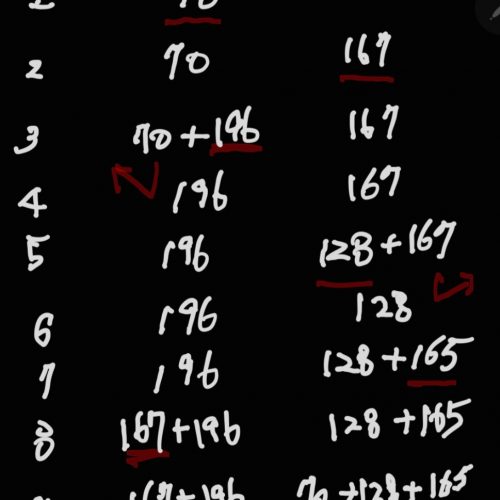 70
2 70 167
3 70 + 196 167
4 196 167
5 196 128 + 167
6 196 128
7 196 128 + 165
8 167 + 196 128 + 165
167 + 196 70 + 128 + 165